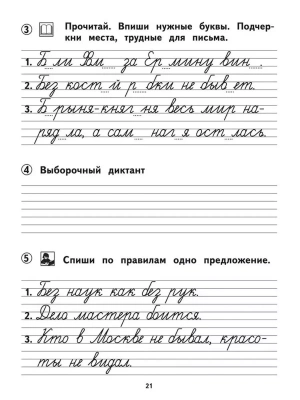 ③ Прочитай. Впиши нужные буквы. Подчер-
кни места, трудные для письма.
1. Б ли Вм за Ер мину вин .
2. Без кост й р бки не быв ет.
3. Б рыня-княг ня весь мир на-
ряд ла, а сам наг я ост лась.
④ Выборочный диктант
⑤ Спиши по правилам одно предложение.
1. Без наук как без рук.
2. Дело мастера боится.
3. Кто в Москве не бывал, красо-
ты не видал.
21